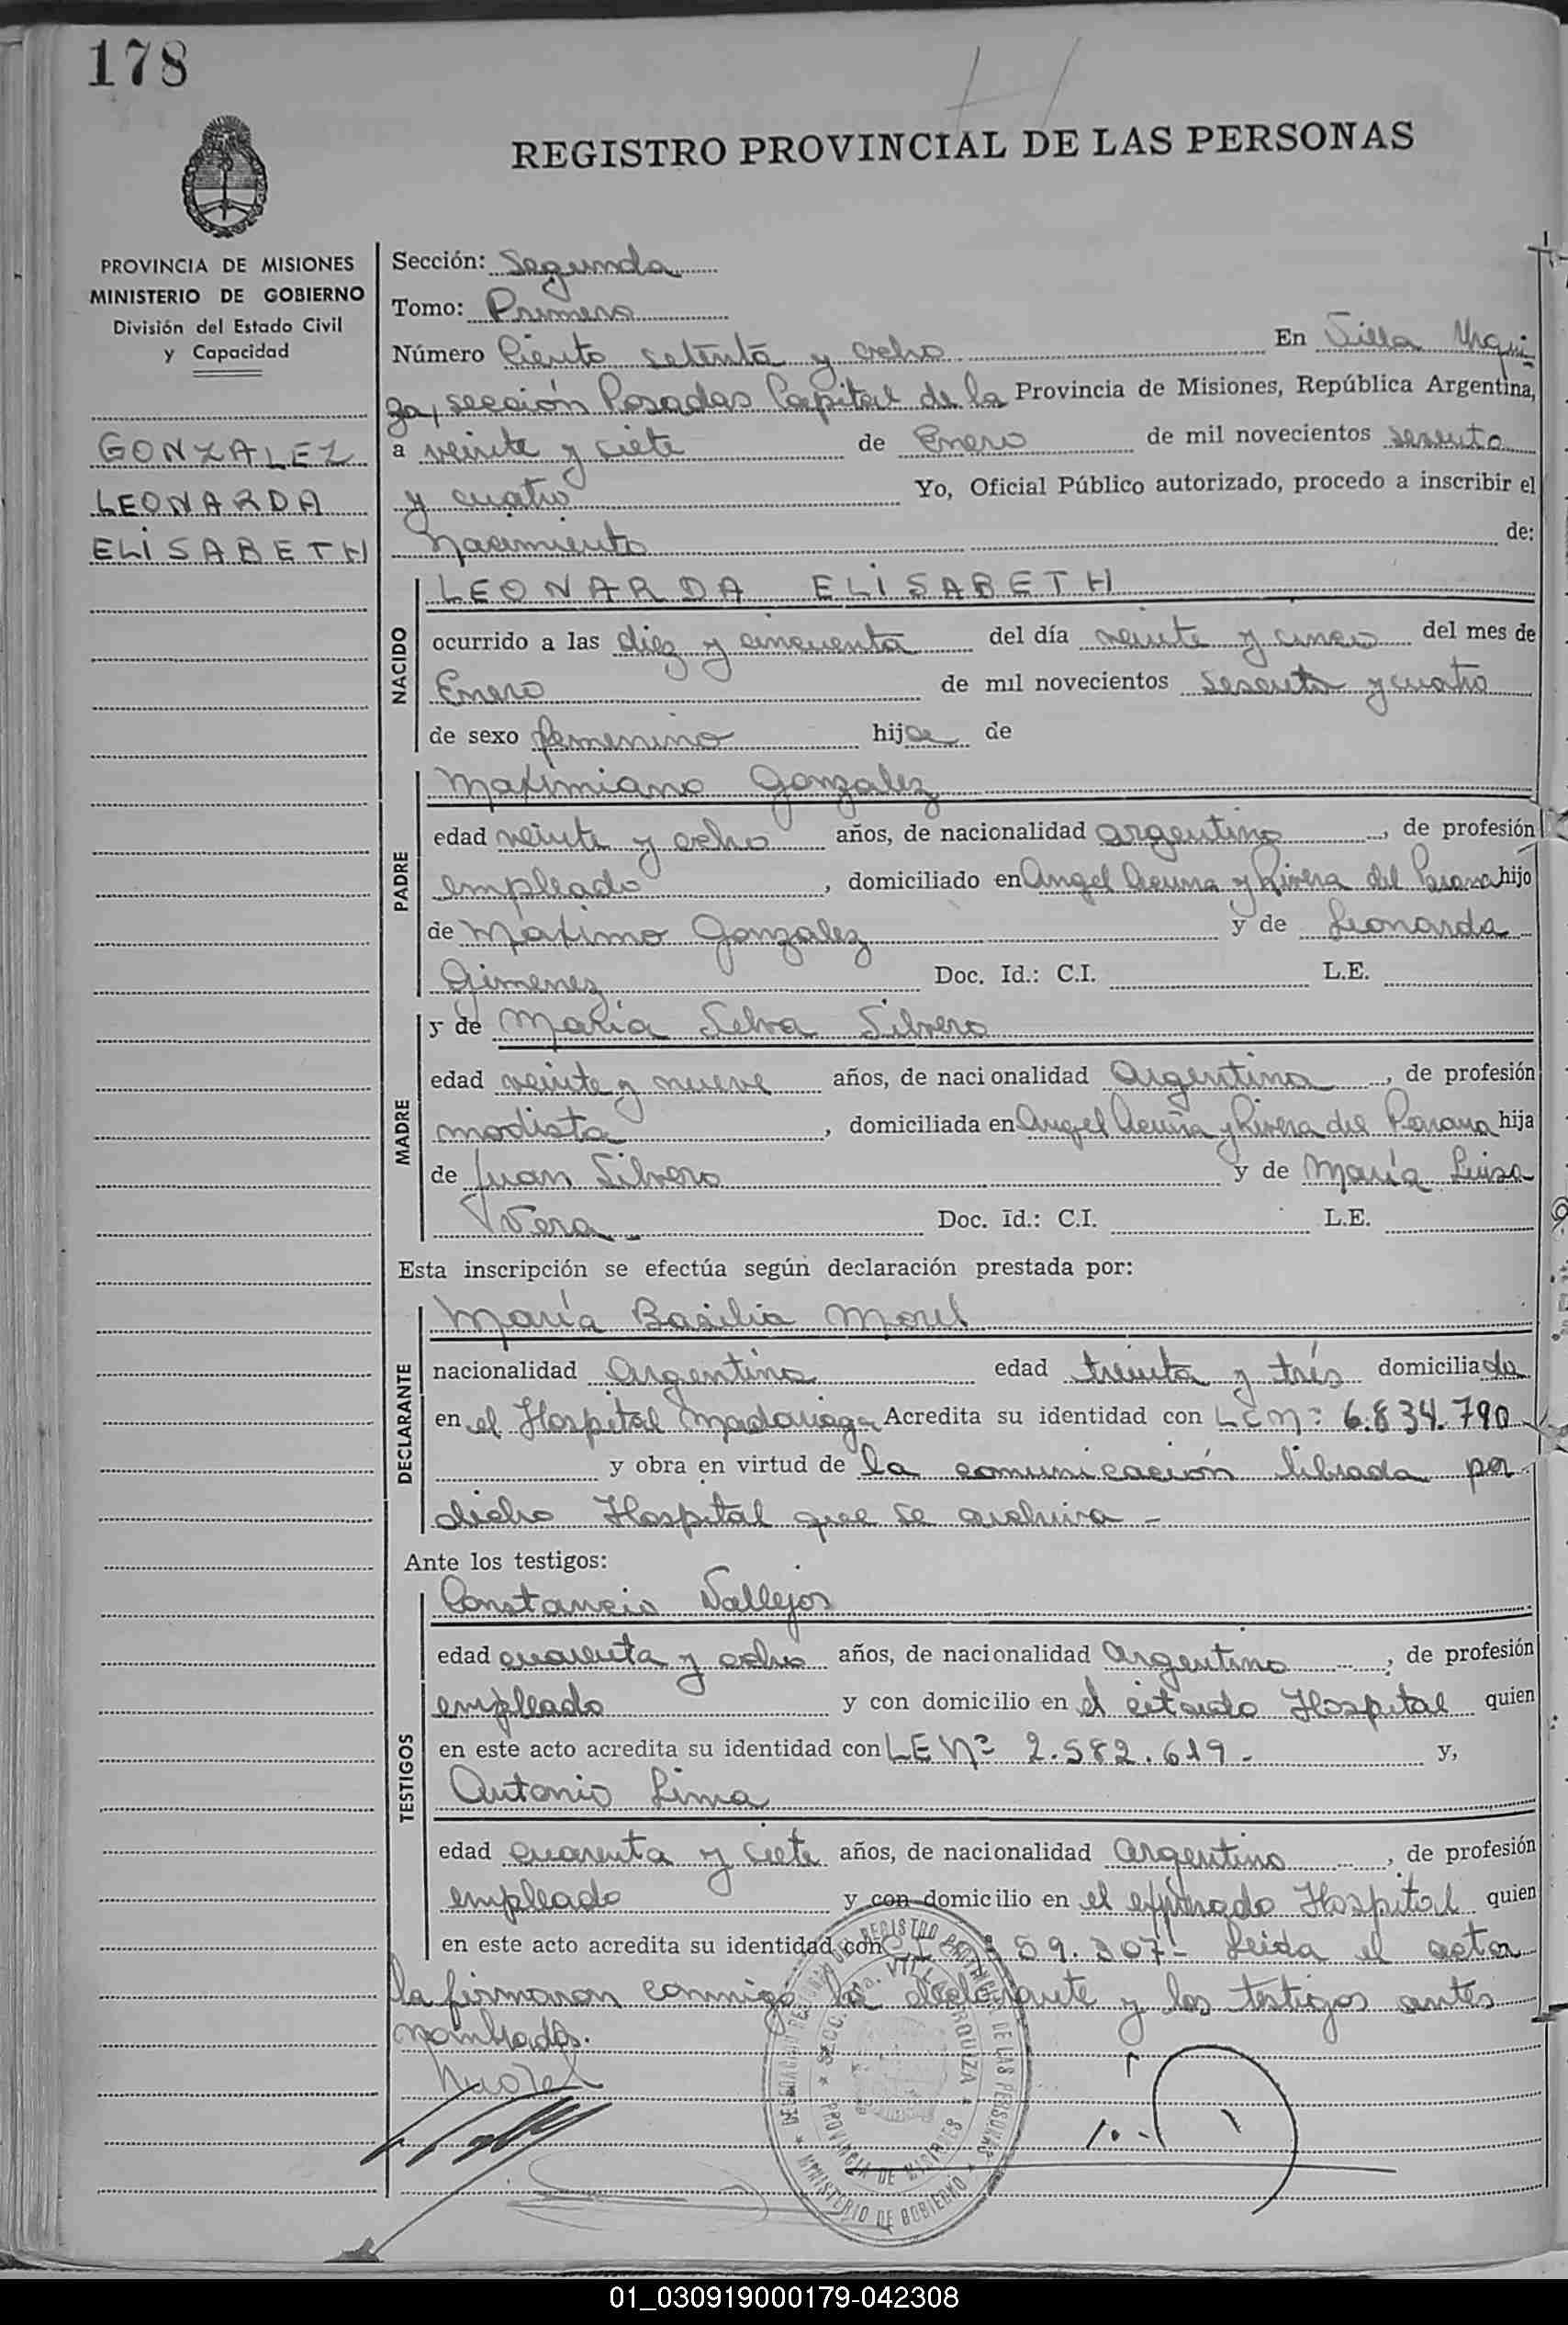 178
REGISTRO PROVINCIAL DE LAS PERSONAS
PROVINCIA DE MISIONES
MINISTERIO DE GOBIERNO
División del Estado Civil
y Capacidad
GONZALEZ
LEONARDA
ELISABETH
Sección: Segunda
Tomo: Primero
Número Ciento setenta y ocho En Villa Urqui
za, sección Posadas Capital de la Provincia de Misiones, República Argentina,
a veinte y siete de Enero de mil novecientos sesenta
y cuatro Yo, Oficial Público autorizado, procedo a inscribir el
Nacimiento de:
NACIDO
LEONARDA ELISABETH
ocurrido a las diez y cincuenta del día veinte y cinco del mes de
Enero de mil novecientos sesenta y cuatro
de sexo femenino hija de
PADRE
Maximiano Gonzalez
edad veinte y ocho años, de nacionalidad argentino, de profesión
empleado, domiciliado en Angel Acuña y Rivera del Parana hijo
de Maximo Gonzalez y de Leonarda
Gimenez Doc. Id.: C.I. L.E.
MADRE
y de María Selva Silvero
edad veinte y nueve años, de nacionalidad Argentina, de profesión
modista, domiciliada en Angel Acuña y Rivera del Parana hija
de Juan Silvero y de María Luisa
Vera Doc. Id.: C.I. L.E.
Esta inscripción se efectúa según declaración prestada por:
DECLARANTE
María Basilia Morel
nacionalidad Argentina edad treinta y trés domiciliada
en el Hospital Madariaga Acredita su identidad con LC Nº 6.834.790
y obra en virtud de la comunicación librada por
dicho Hospital que se archiva -
Ante los testigos:
TESTIGOS
Constancio Vallejos
edad cuarenta y ocho años, de nacionalidad Argentino, de profesión
empleado y con domicilio en el citado Hospital quien
en este acto acredita su identidad con LE Nº 2.582.619.- y,
Antonio Lima
edad cuarenta y siete años, de nacionalidad Argentino, de profesión
empleado y con domicilio en el expresado Hospital quien
en este acto acredita su identidad con CI 59.307- Leida el acta
la firmaron conmigo la declarante y los testigos antes
nombrados.
Morel
REGISTRO PROVINCIAL DE LAS PERSONAS
VILLA URQUIZA
PROVINCIA DE MISIONES
MINISTERIO DE GOBIERNO
01_030919000179-042308